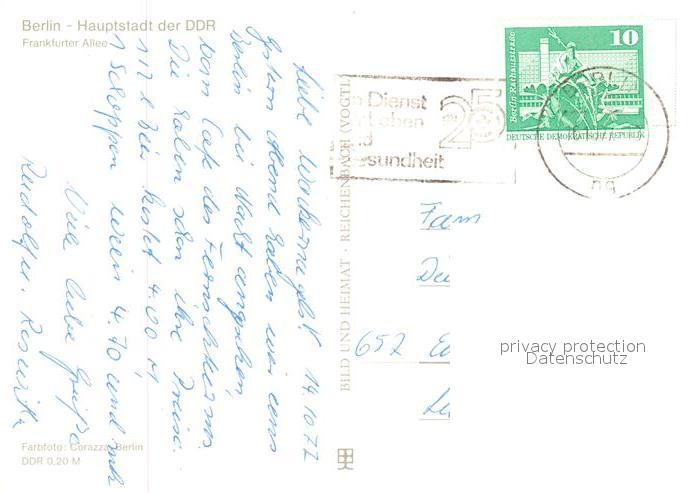 Berlin - Hauptstadt der DDR
Frankfurter Allee
Liebe 14.10.77
Gestern Abend haben wir uns
Berlin bei Nacht angesehen,
vom Cafe des Fernsehturms
Die haben schon ihre Preise.
1/2 l Bier kostet 4.00 M
1 Schoppen Wein 4.70 und mehr
Viele liebe Grüße
Rudolf u. Roswitha
Farbfoto: Corazza, Berlin
DDR 0,20 M
BILD UND HEIMAT · REICHENBACH (VOGTL
m Dienst
25
sundheit
10
Berlin-Rathausstraße
DEUTSCHE DEMOKRATISCHE REPUBLIK
Fam
657
privacy protection
Datenschutz